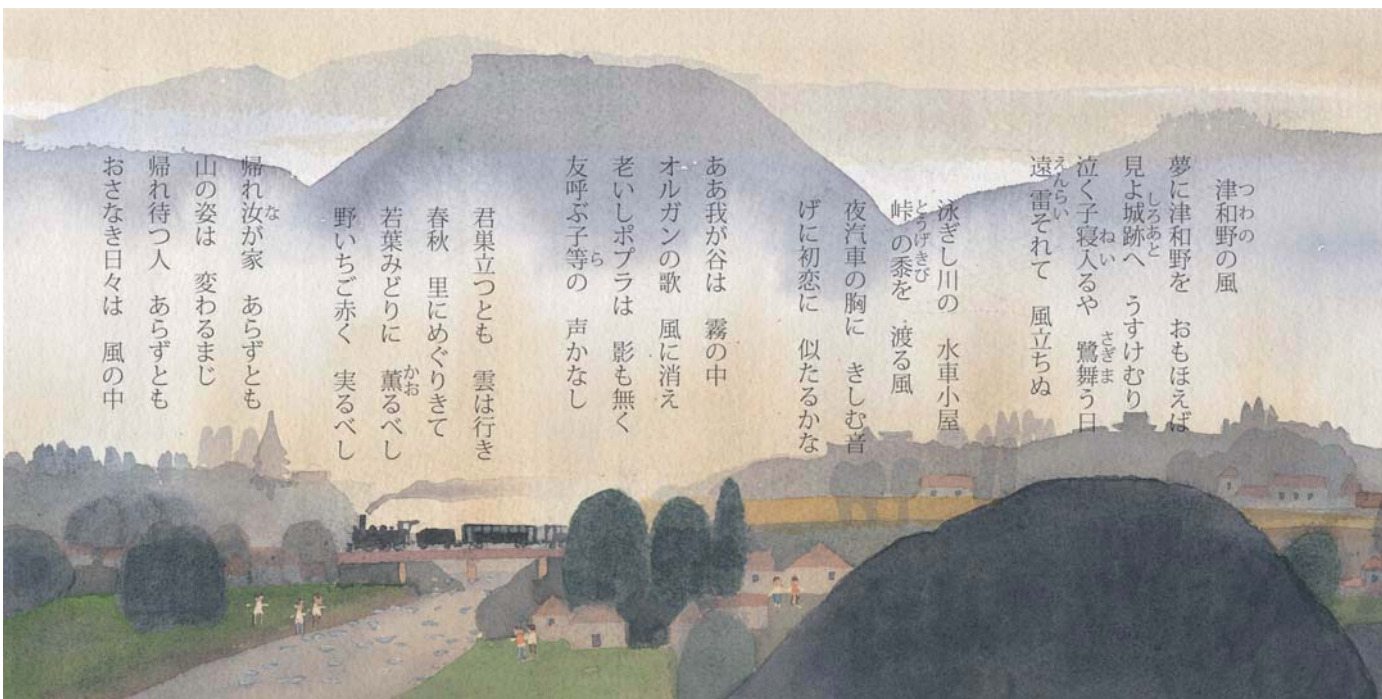 津和野の風
夢に津和野を　おもほえば
見よ城跡へ　うすけむり
泣く子寝入るや　鷺舞う日
遠雷それて　風立ちぬ
泳ぎし川の　水車小屋
峠の黍を　渡る風
夜汽車の胸に　きしむ音
げに初恋に　似たるかな
ああ我が谷は　霧の中
オルガンの歌　風に消え
老いしポプラは　影も無く
友呼ぶ子等の　声かなし
君巣立つとも　雲は行き
春秋　里にめぐりきて
若葉みどりに　薫るべし
野いちご赤く　実るべし
帰れ汝が家　あらずとも
山の姿は　変わるまじ
帰れ待つ人　あらずとも
おさなき日々は　風の中